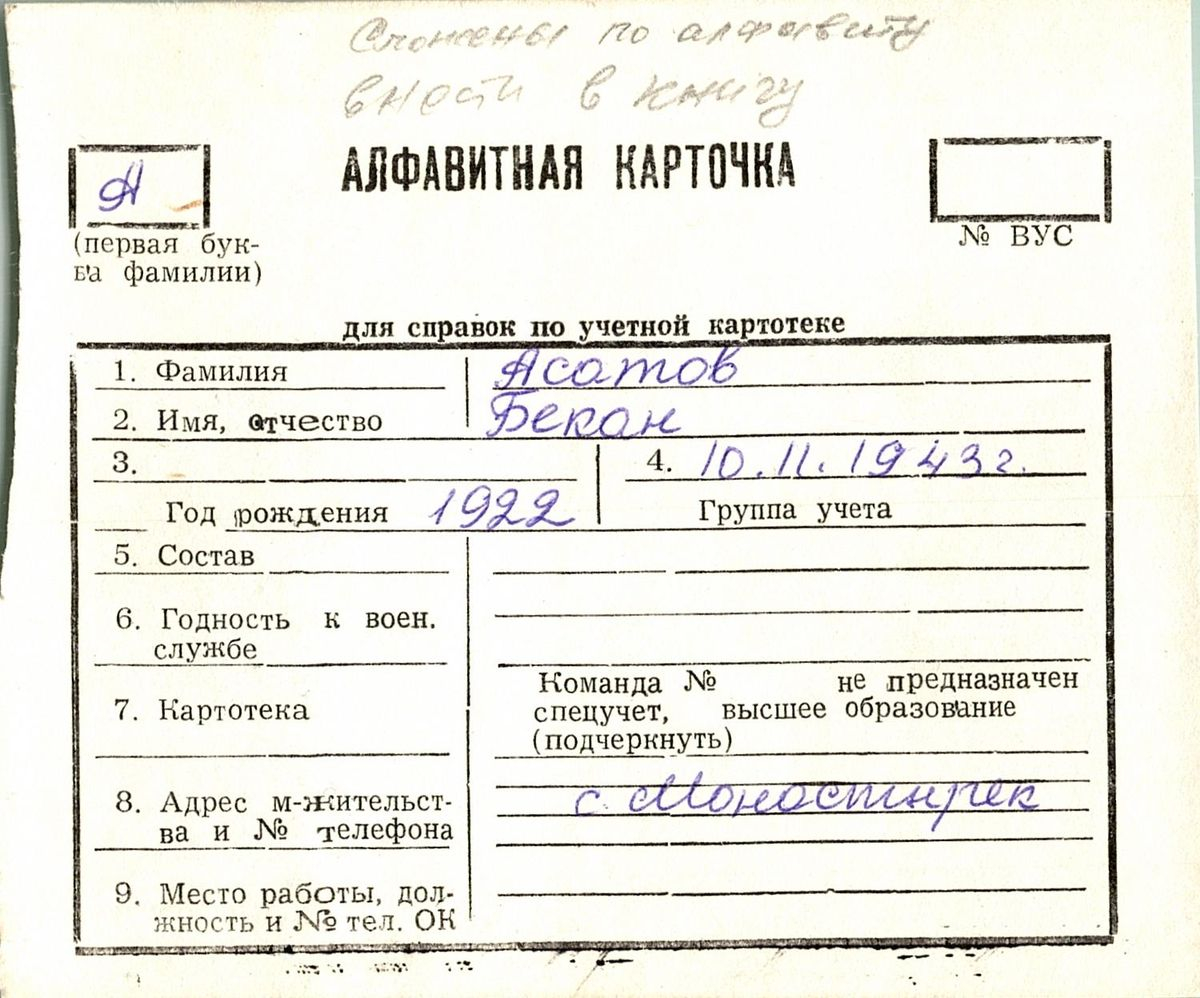 Сложены по алфавиту
внести в книгу
А
АЛФАВИТНАЯ КАРТОЧКА
(первая бук-
ва фамилии)
№ ВУС
для справок по учетной картотеке
1. Фамилия Асатов
2. Имя, отчество Бекан
3. 4. 10.11.1943г.
Год рождения 1922 Группа учета
5. Состав
6. Годность к воен.
службе
7. Картотека
Команда № не предназначен
спецучет, высшее образование
(подчеркнуть)
8. Адрес м-жительст-
ва и № телефона
с. Монастирек
9. Место работы, дол-
жность и № тел. ОК